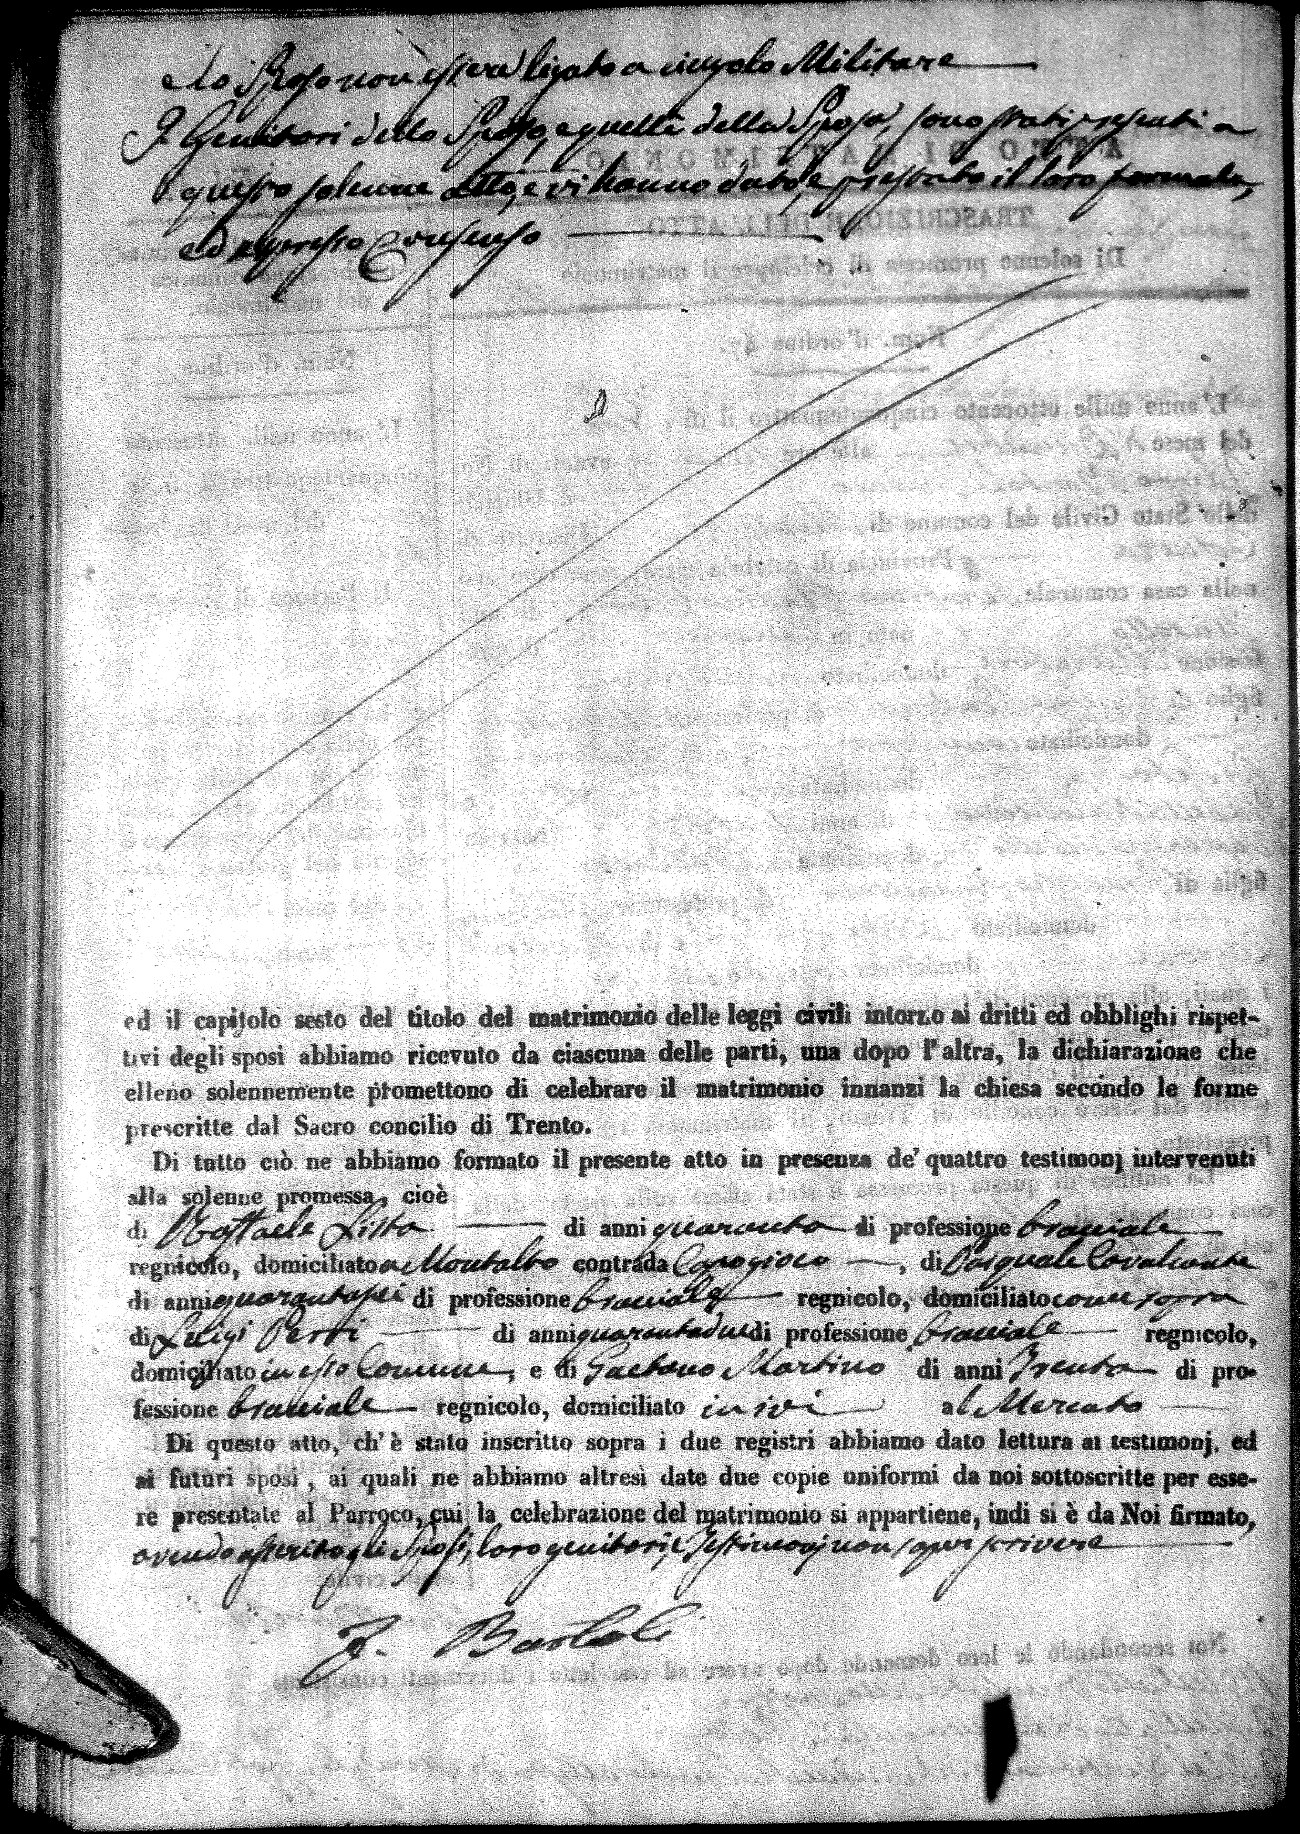 e lo Sposo non essere ligato a vincolo Militare
I Genitori dello Sposo, e quelli della Sposa, sono stati presenti a
questo solenne atto, e vi hanno dato, e prestato il loro formale,
ed espresso Consenso
ed il capitolo sesto del titolo del matrimonio delle leggi civili intorno ai dritti ed obblighi rispet-
tivi degli sposi abbiamo ricevuto da ciascuna delle parti, una dopo l'altra, la dichiarazione che
elleno solennemente promettono di celebrare il matrimonio innanzi la chiesa secondo le forme
prescritte dal Sacro concilio di Trento.
Di tutto ciò ne abbiamo formato il presente atto in presenza de' quattro testimonj intervenuti
alla solenne promessa, cioè
di Raffaele Lista di anni quaranta di professione bracciale
regnicolo, domiciliato a Montalto contrada Capogioco, di Pasquale Cavalcante
di anni quarantasei di professione bracciale regnicolo, domiciliato come sopra
di Luigi Perri di anni quarantadue di professione bracciale regnicolo,
domiciliato in esso Comune, e di Gaetano Martino di anni Trenta di pro-
fessione bracciale regnicolo, domiciliato in ivi al Mercato
Di questo atto, ch'è stato inscritto sopra i due registri abbiamo dato lettura ai testimonj, ed
ai futuri sposi, ai quali ne abbiamo altresì date due copie uniformi da noi sottoscritte per esse-
re presentate al Parroco, cui la celebrazione del matrimonio si appartiene, indi si è da Noi firmato,
avendo asserito gli Sposi, loro genitori, e Testimonj non saper scrivere